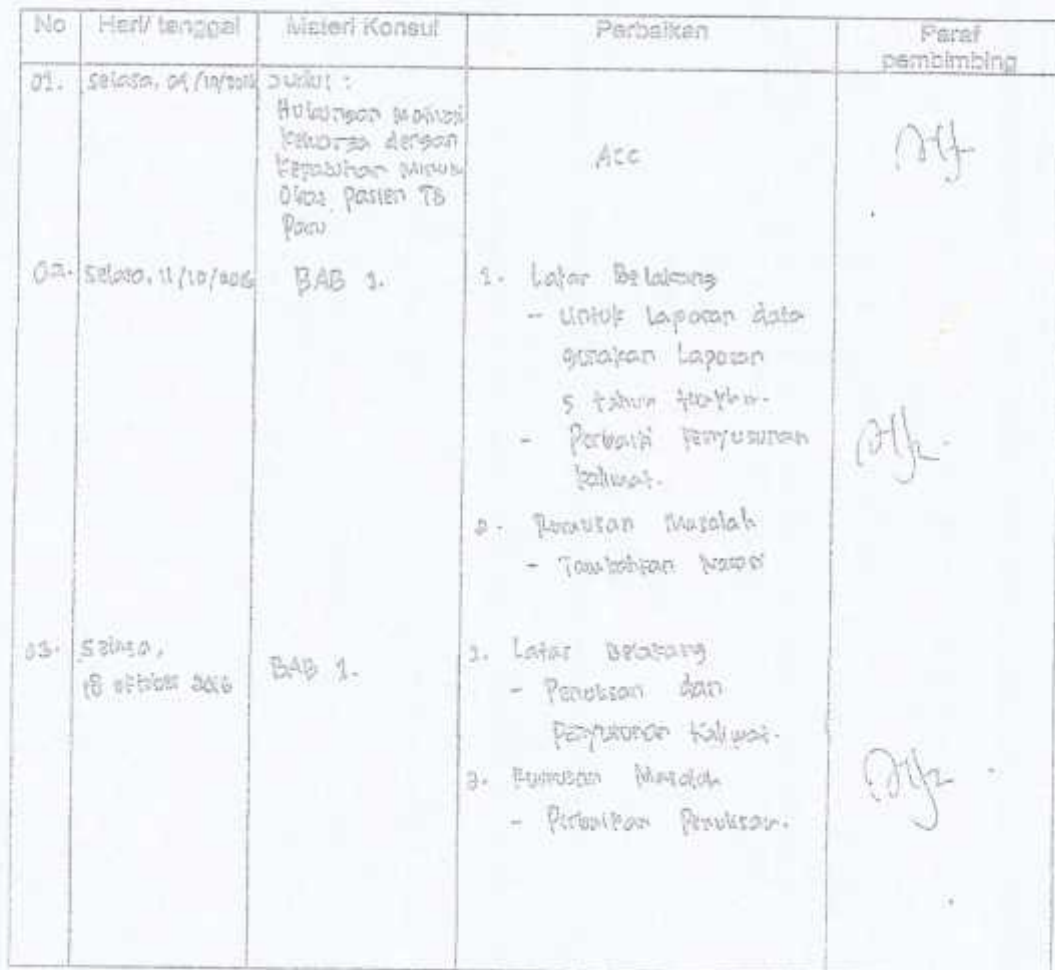 No Hari/ tanggal Materi Konsul Perbaikan Paraf pembimbing
01. Selasa, 04/10/2016 Judul :
Hubungan Motivasi
Keluarga dengan
Kepatuhan Minum
Obat Pasien TB
Paru
Acc
02. Selasa, 11/10/2016 BAB 1.
1. Latar Belakang
- Untuk Laporan data
gunakan Laporan
5 tahun terakhir.
- Perbaiki Penyusunan
kalimat.
2. Rumusan Masalah
- Tambahkan Narasi
03. Selasa,
18 oktober 2016
BAB 1.
1. Latar Belakang
- Penulisan dan
Penyusunan Kalimat.
2. Rumusan Masalah
- Perbaikan Penulisan.